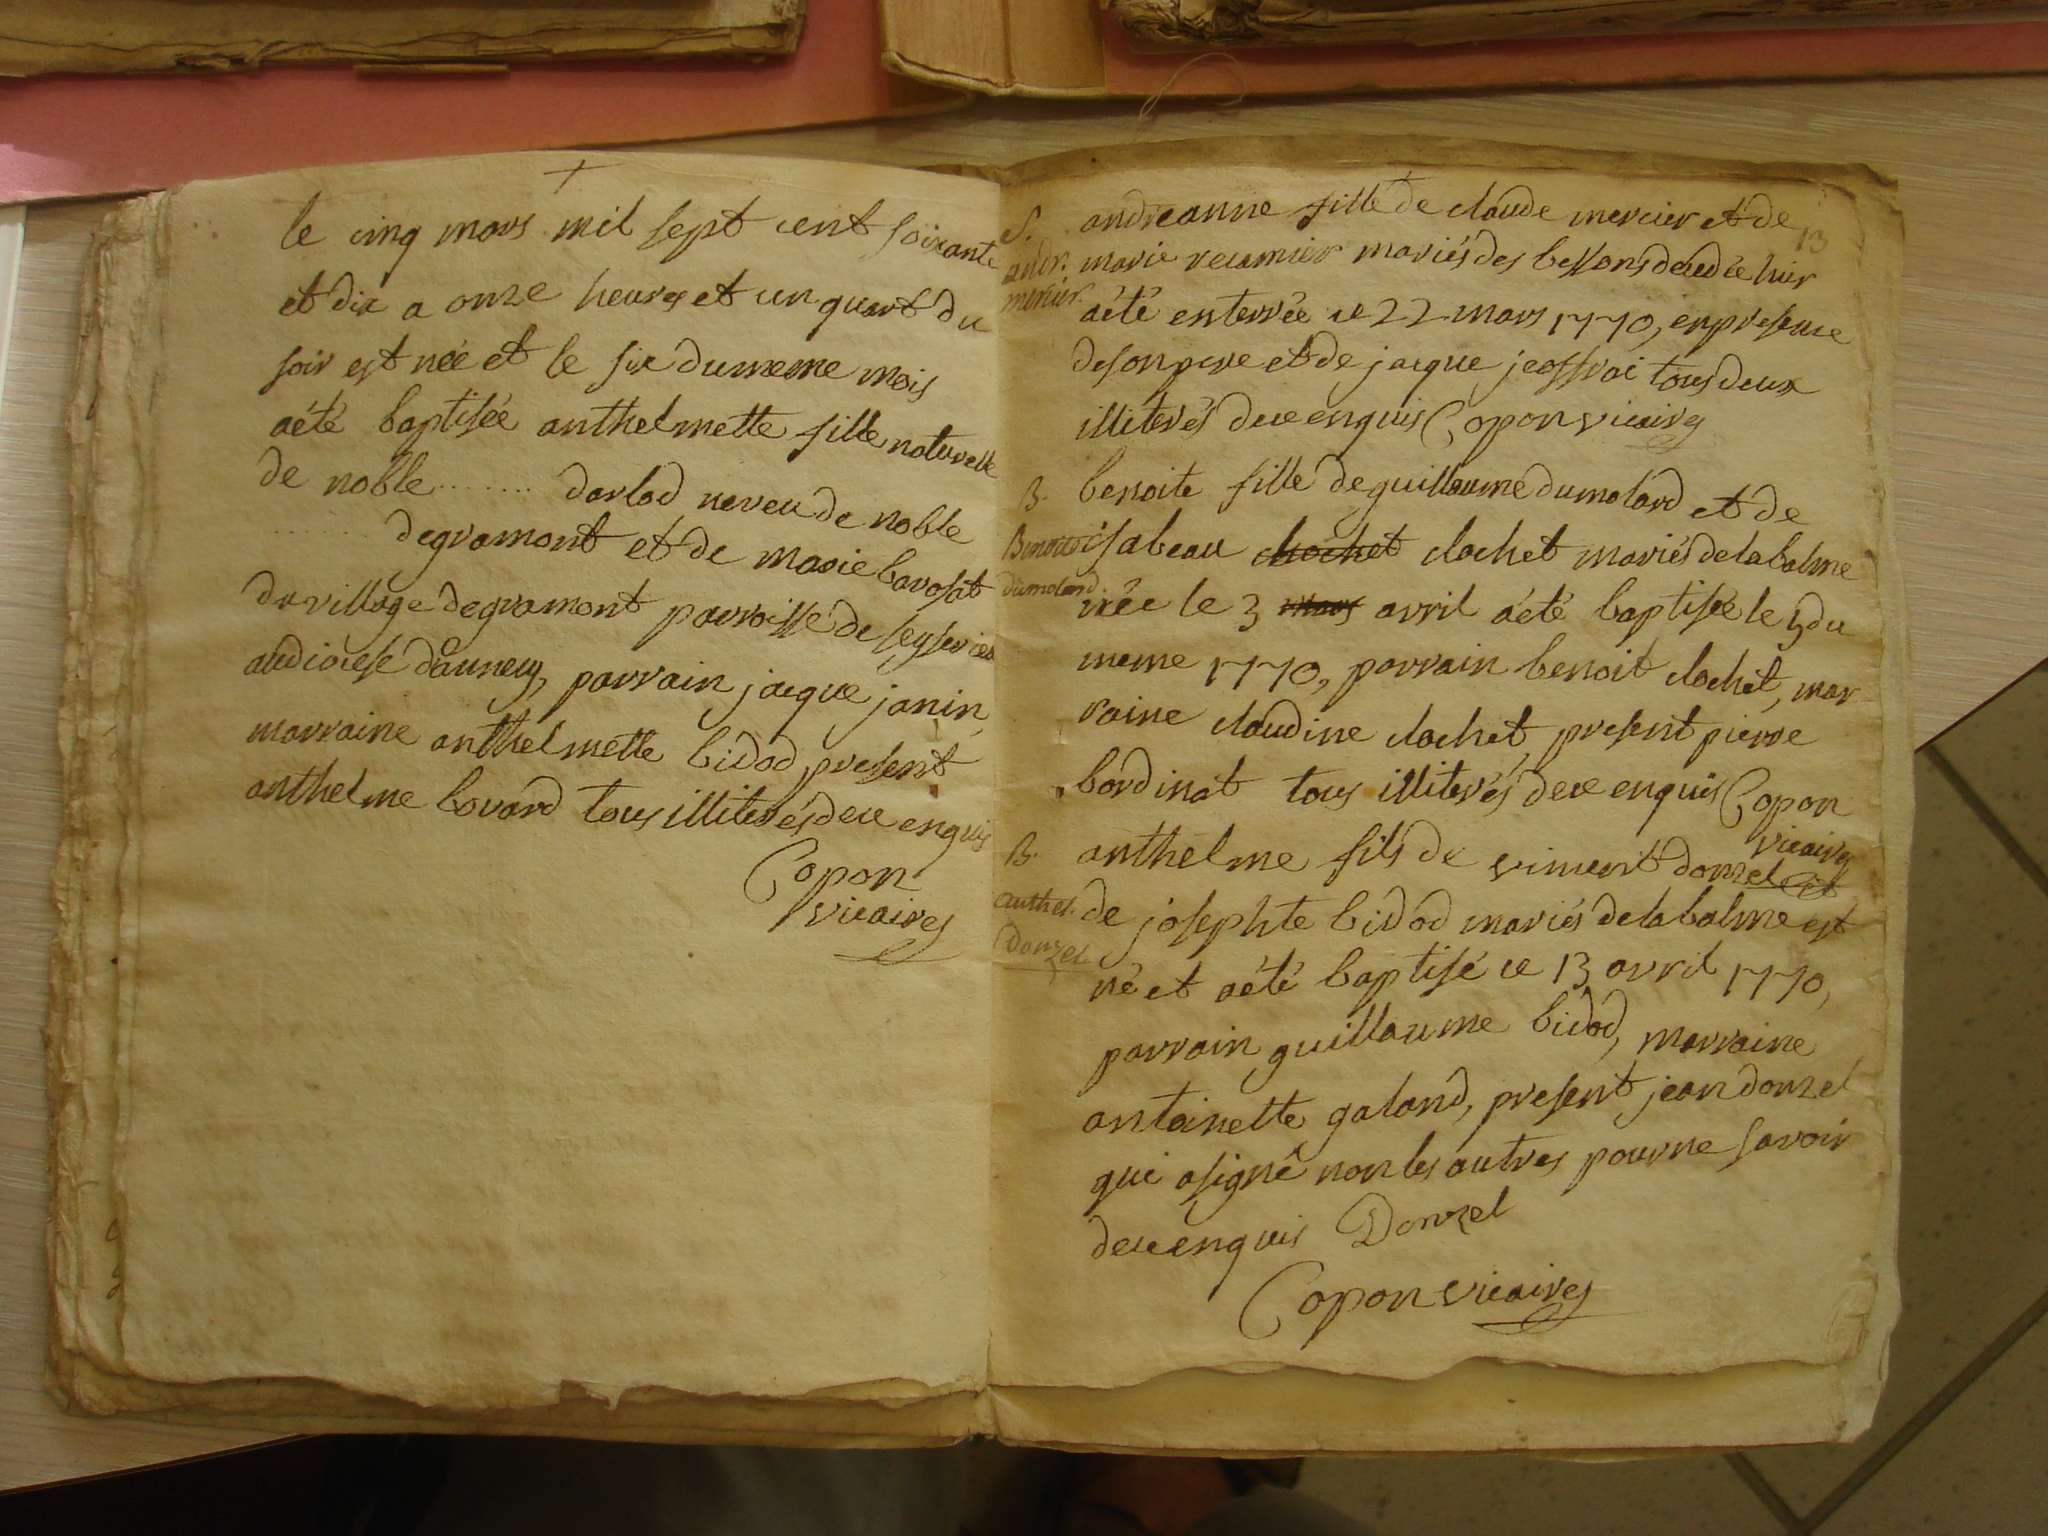 le cinq mars mil sept cent soixante
et dix a onze heures et un quart du
soir est née et le six du meme mois
a été baptisée anthelmette fille naturelle
de noble ........ darlod neveu de noble
...... degramont et de marie
du village degramont parroisse de
au diocese d'annecy, parrain jacque janin,
marraine anthelmette bidod, present
anthelme bovard tous illiterés de ce enquis
Copon
vicaires
13
S.
andr.
mercier
andreanne fille de claude mercier et de
marie recamier mariés des bessons decedée hier
a été enterrée ce 22 mars 1770, en presence
de son pere et de jacque jeoffroi tous deux
illiterés de ce enquis Copon vicaires
B.
Benoite
dumolard.
benoite fille de guillaume dumolard et de
isabeau clochet clochet mariés de la balme
née le 3 mars avril a été baptisée le 5 du
meme 1770, parrain benoit clochet, mar
raine claudine clochet, present pierre
bordinat tous illiterés de ce enquis Copon
vicaires
B.
anthel.
Donzel
anthelme fils de vincent donzel et
de josephte bidod mariés de la balme est
né et a été baptisé ce 13 avril 1770,
parrain guillaume bidod, marraine
antoinette galand, present jean donzel
qui a signé non les autres pour ne savoir
de ce enquis Donzel
Copon vicaires